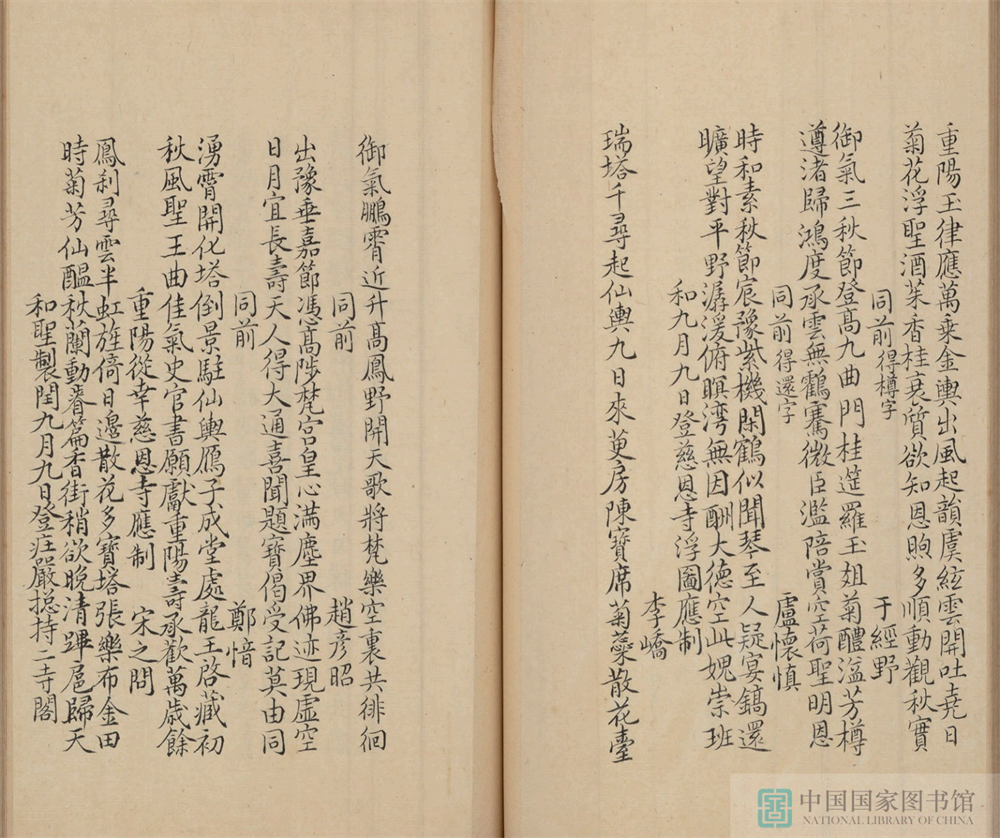 重陽玉律應萬乘金輿出風起韻虞絃雲開吐堯日
菊花浮聖酒茱香桂衰質欲知恩煦多順動觀秋實
同前得樽字 于經野
御氣三秋節登高九曲門桂筵羅玉俎菊醴溢芳樽
遵渚歸鴻度承雲無鶴騫微臣濫陪賞空荷聖明恩
同前得還字 盧懷慎
時和素秋節宸豫紫機閑鶴似聞琴至人疑宴鎬還
曠望對平野潺湲俯暝灣無因酬大德空此媿崇班
和九月九日登慈恩寺浮圖應制 李嶠
瑞塔千尋起仙輿九日來萸房陳寶席菊蘂散花臺
御氣鵬霄近升高鳳野開天歌將梵樂空裏共徘徊
同前 趙彥昭
出豫垂嘉節馮高陟梵宮皇心滿塵界佛迹現虛空
日月宜長壽天人得大通喜聞題寶偈受記莫由同
同前 鄭愔
湧霄開化塔倒景駐仙輿鴈子成堂處龍王啓藏初
秋風聖王曲佳氣史官書願獻重陽壽承歡萬歲餘
重陽從幸慈恩寺應制 宋之問
鳳刹尋雲半虹旌倚日邊散花多寶塔張樂布金田
時菊芳仙醞秋蘭動睿篇香街稍欲晚清蹕扈歸天
和聖製閏九月九日登庄嚴摠持二寺閣
中国国家图书馆
NATIONAL LIBRARY OF CHINA